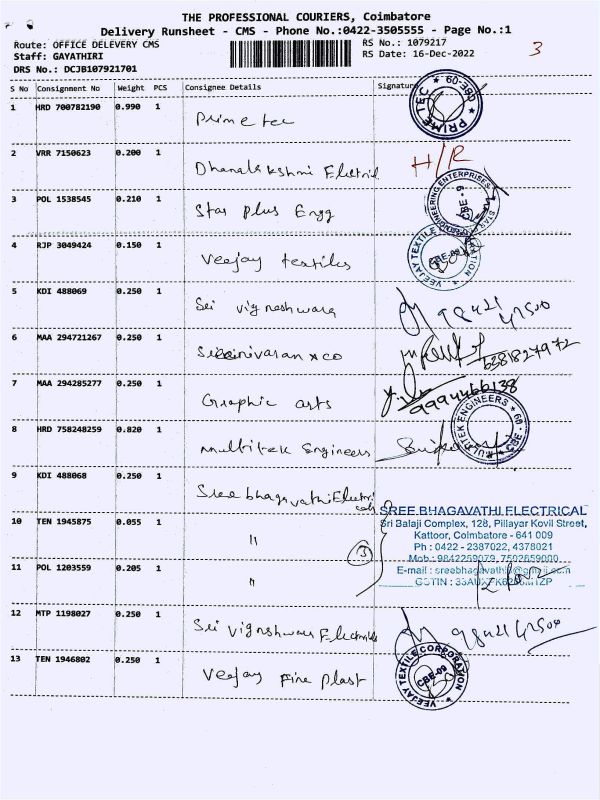 THE PROFESSIONAL COURIERS, Coimbatore
Delivery Runsheet - CMS - Phone No.:0422-3505555 - Page No.:1
Route: OFFICE DELEVERY CMS
RS No.: 1079217
3
Staff: GAYATHIRI
RS Date: 16-Dec-2022
DRS No.: DCJB107921701
S No Consignment No Weight PCS Consignee Details Signature
1 HRD 700782190 0.990 1 Prime tec
PRIME TEC
2 VRR 7150623 0.200 1 Dhanalakshmi Electrical H/R
3 POL 1538545 0.210 1 Star plus Engg
ENGINEERING ENTERPRISES STAR CBE - 9
4 RJP 3049424 0.150 1 Veejay textiles
VEEJAY TEXTILE CBE-09
5 KDI 488069 0.250 1 Sri vigneshwara 98421 47500
6 MAA 294721267 0.250 1 Srinivasan & co 6381827972
7 MAA 294285277 0.250 1 Graphic arts 9994466138
8 HRD 758248259 0.820 1 Multitek Engineers
MULTITEK ENGINEERS CBE
9 KDI 488068 0.250 1 Sree bhagavathi Electricals
SREE BHAGAVATHI ELECTRICAL
Sri Balaji Complex, 128, Pillayar Kovil Street,
Kattoor, Coimbatore - 641 009
Ph : 0422 - 2387022, 4378021
Mob : 9842259079, 7502859000
E-mail :
GSTIN :
10 TEN 1945875 0.055 1 "
3
11 POL 1203559 0.205 1 "
12 MTP 1198027 0.250 1 Sri Vigneshwara Electricals 98421 47500
13 TEN 1946802 0.250 1 Veejay Fine plast
VEEJAY TEXTILE CORPORATION CBE-09